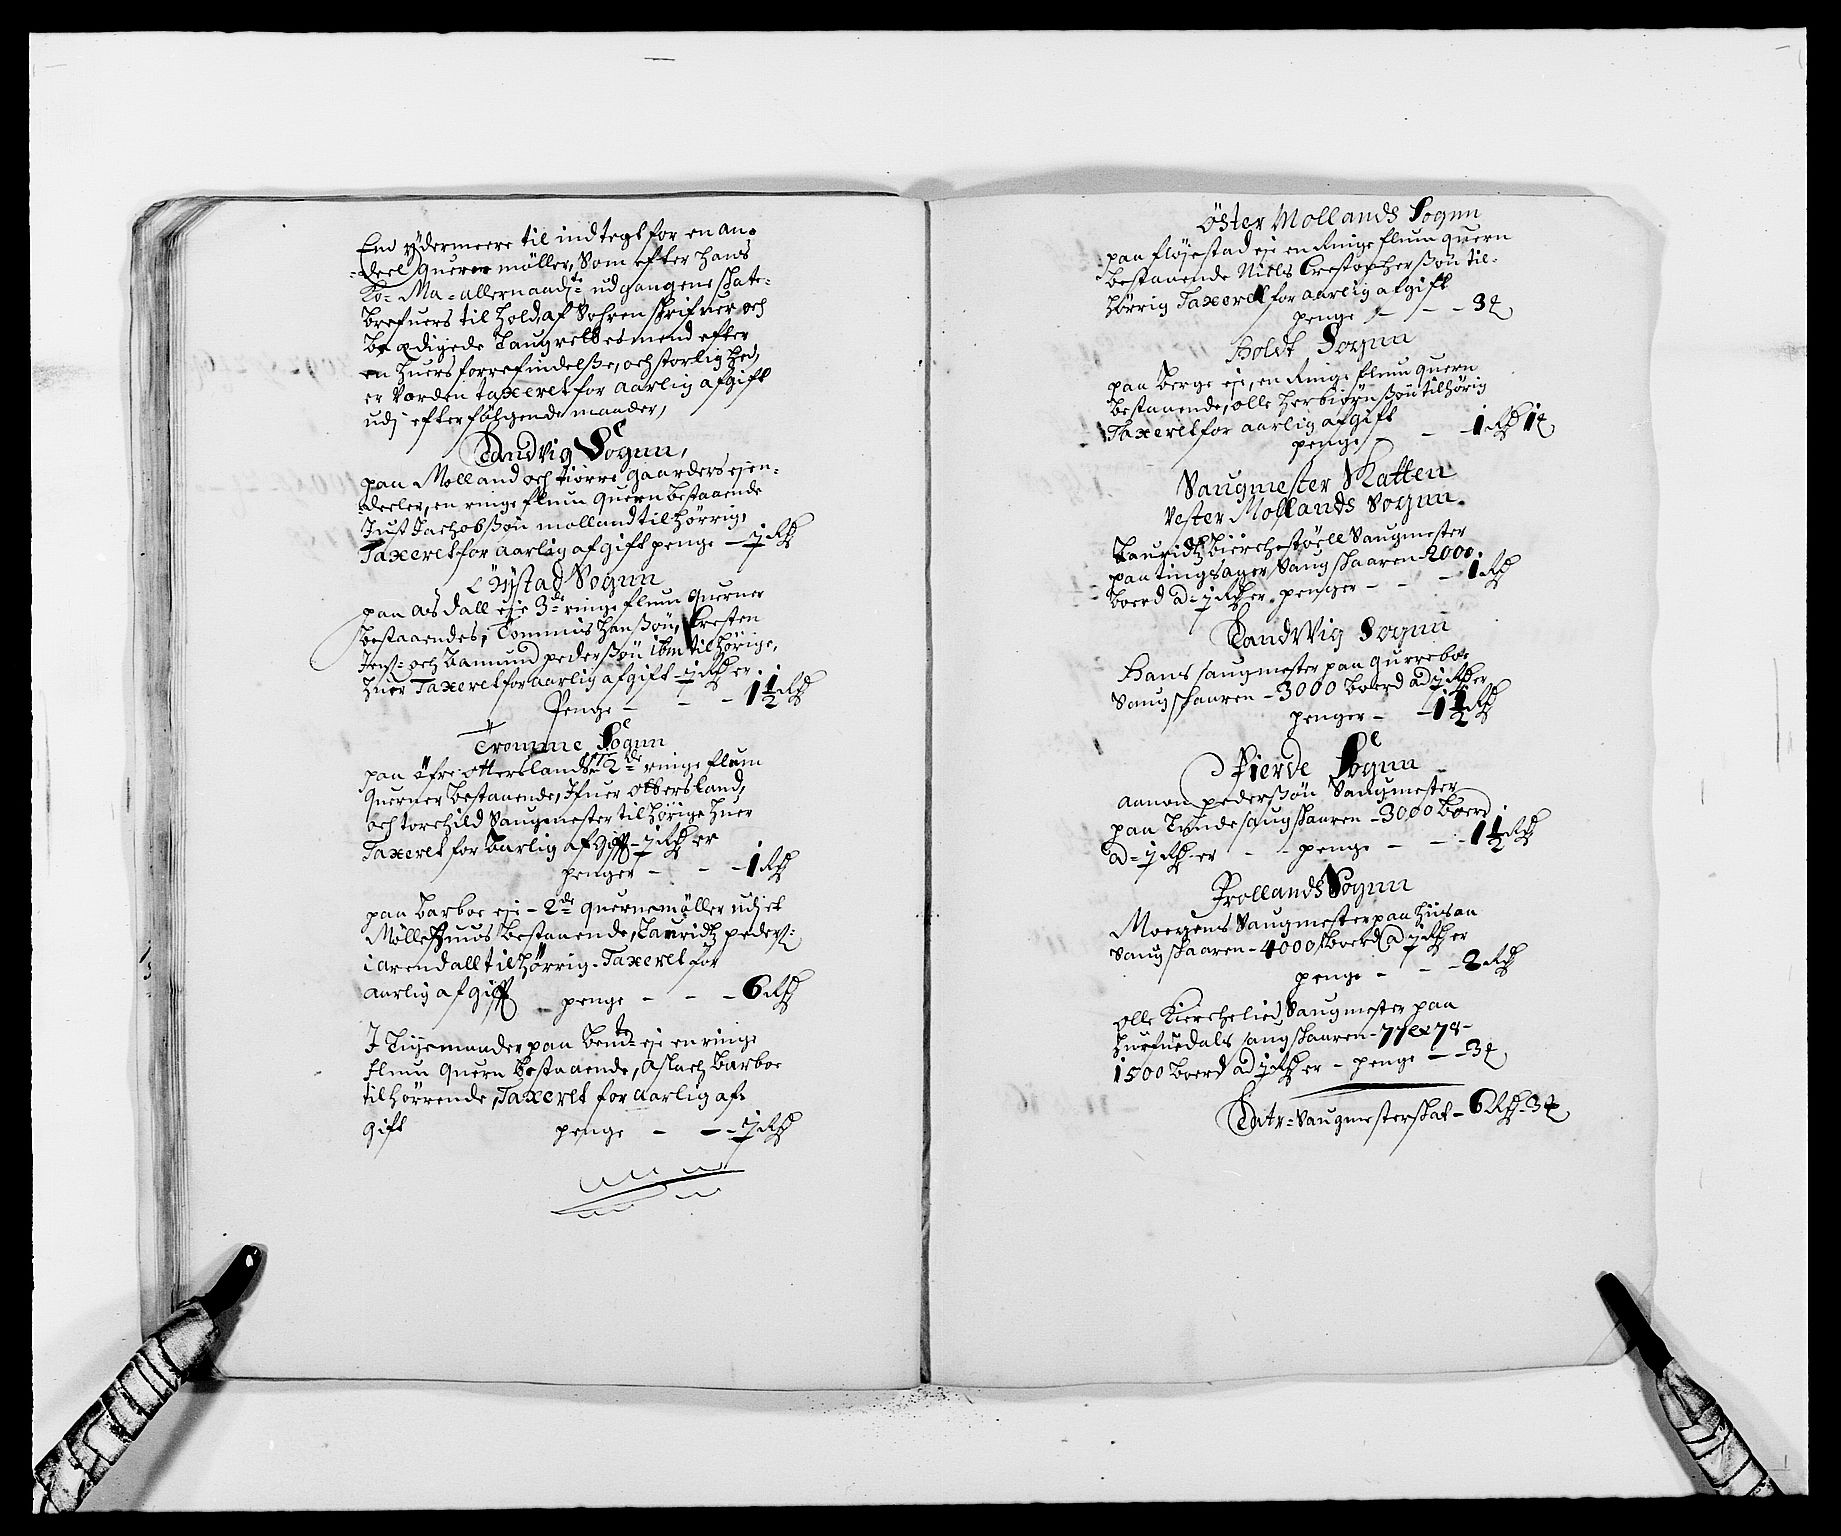 End ydermeere til indtegt for en an-
-deel querne møller, Som efter Hans
Ko- Ma- allernaadste udgangene skate-
Brefuers til Hold, af Sohren skrifuer och
be ædigede Laugrettesmend efter
en huers forrefindelße, och storlighed,
er vorden taxeret for aarlig afgift
udj efterfølgende maader,
Landvig Sogn,
paa Molland och tiørre gaarders ejen-
deeler, en ringe flum quern bestaaende
Just Jachobßøn molland tilhørrig,
Taxeret for aarlig afgift penge - ½ Rd
Øystad Sogn
paa Aasdall eje 3de ringe flum querner
bestaaendes, Tommis Hanßøn, Cresten
Jens: och Bamund pederßøn ibm tilhørige,
huer Taxeret for aarlig afgift - ½ Rd er
Penge - - - 1½ Rd
Tromme Sogn
paa øfre otterslands 2de ringe flum
querner bestaaende, Ifuer ottersland,
och torchild Saugmester tilhørige huer
Taxeret for Aarlig afgift - ½ Rd er
penger - - - 1 Rd
paa Barboe eje - 2de quernemøller udj et
Møllehuus bestaaende, Lauridtz peders:
i arendall tilhørrig - Taxeret for
aarlig afgift penge - - - 6 Rd
I Tuyemander paa Bende eje en ringe
flum quern bestaaende, Aslach Barboe
tilhørrende, Taxeret for aarlig af-
gift penge - - - ½ Rd
Öster Mollands Sogn
paa fløjestad eje en Ringe flum quern
bestaaende Niels Crestopherßøn til-
hørrig Taxeret for aarlig afgift
penge - - - 3
Holdt Sogn
paa Berge eje, en Ringe flum quern
bestaaende, olle Herbiørnßøn tilhørig
Taxeret for aarlig afgift
penge - - - 1 Rd 1
Saugmester Skatten
Vester Mollands Sogn.
Lauridtz Bierchestøell Saugmester
paa tingsager, Saug skaaren 2000
boerd ad ½ Rd er penger - - - 1 Rd
Landvig Sogn
Hans saugmester paa gurreboe
Saug skaaren - 3000 boerd ad ½ Rd er
penger - - 1½ Rd
Fierde Sogn
Aanon pederßøn Saugmester
paa Lunde saug skaaren - 3000 boerd
ad - ½ Rd er - - penge - - - 1½ Rd
Frollands Sogn
Moegens Saugmester paa Husaa
Saug skaaren - 4000 boerd ad ½ Rd er
penge - - - 2 Rd
olle Kierchelied Saugmester paa
Hurfuedals saug skaaren - 77 &amp; 78 -
1500 boerd ad ½ Rd er - penge - - 3
Latr: Saugmesterskat - 6 Rd - 3